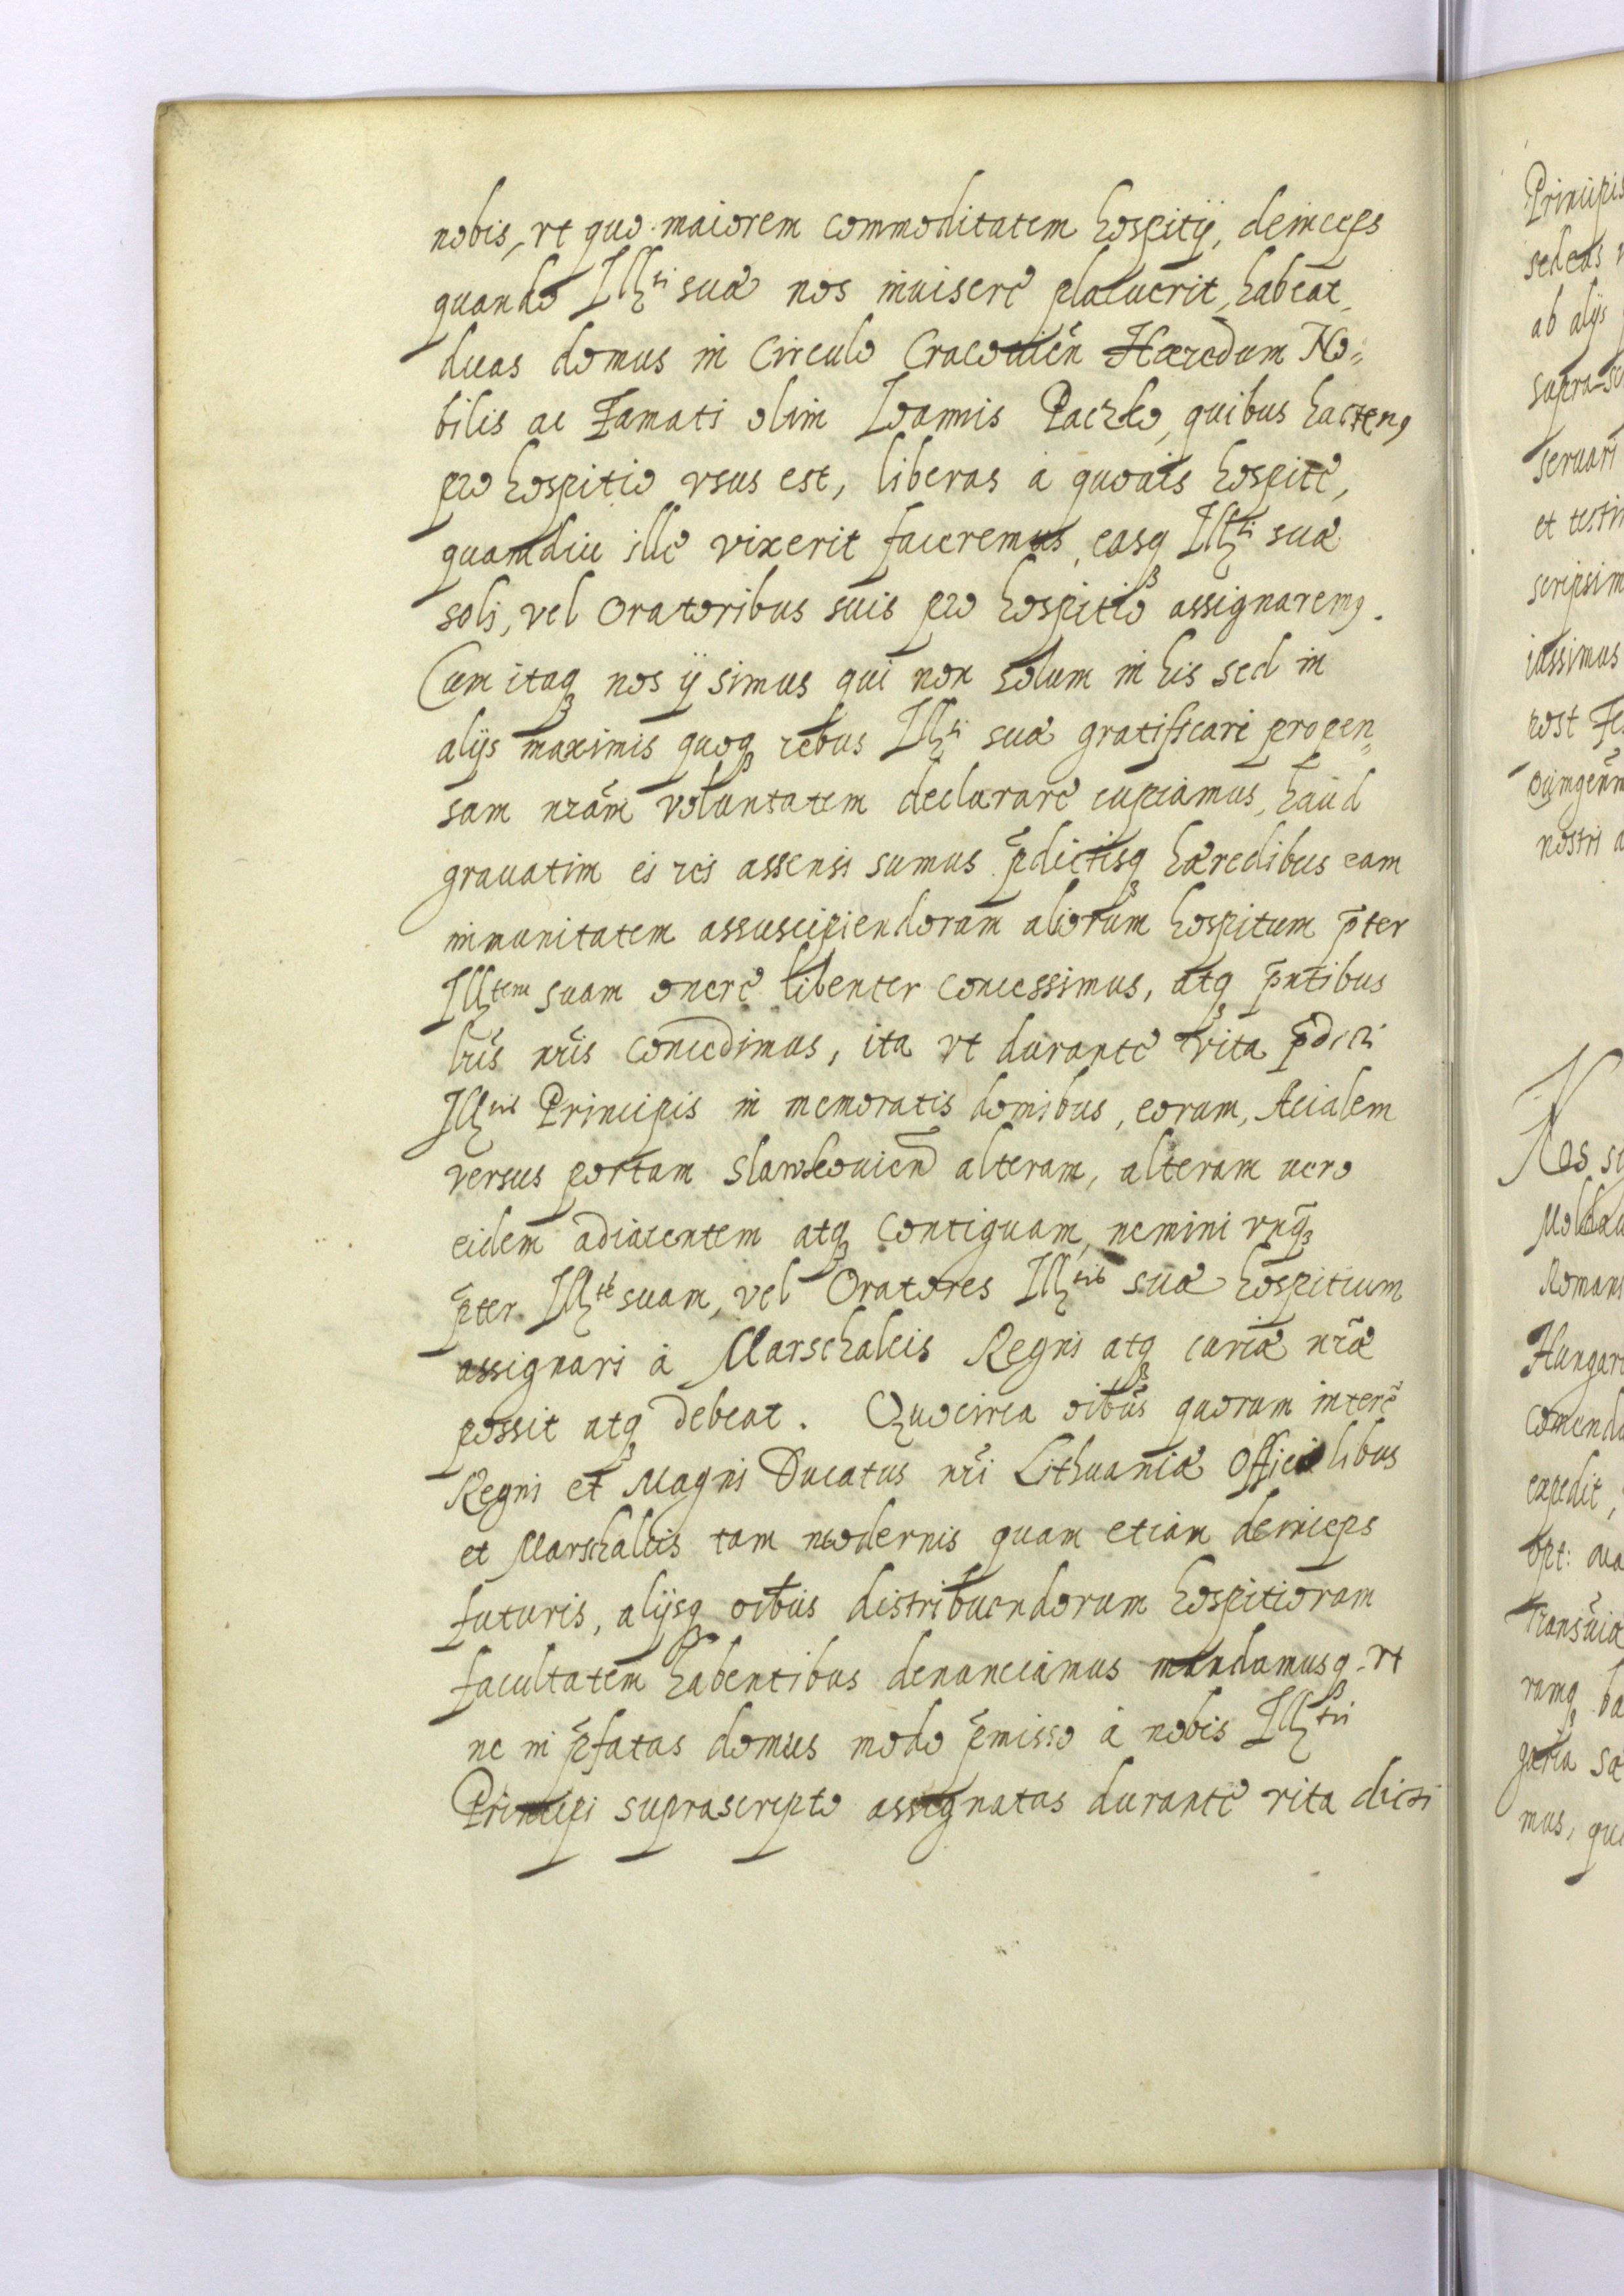 nobis, vt quo maiorem commoditatem hospitij, deinceps
quando Ill:ti suæ nos inuisere placuerit, habeat
duas domus in Circulo Cracouien̄ Hæredum No=
bilis ac Famati olim Ioannis Paczko, quibus hacten9
pro hospitio vsus est, liberas à quouis hospite,
quamdiu ille vixerit faceremus, easq3 Ill:ti suæ
soli, vel Oratoribus suis pro hospitio assignarem9.
Cum itaq3 nos ij simus qui non solum in his sed in
alijs maximis quoq3 rebus Ill:ti suæ gratificari propen=
sam nr̄am voluntatem declarare cupiamus, haud
grauatim ei rei assensi sumus p̄dictisq3 hæredibus eam
immunitatem assuscipiendorum aliorum hospitum p̄ter
Ill:tem suam onere libenter concessimus, atq3 p̄ntibus
lr̄is nr̄is concedimus, ita vt durante vita p̄dicti
Ill:tis Principis in memoratis domibus, eorum, Acialem
versus portam Slawkouien̄ alteram, alteram uero
eidem adiacentem atq3 contiguam, nemini vnq̄3
p̄ter Ill:tē suam, vel Oratores Ill:tis suæ hospitium
assignari à Marschalcis Regni atq3 curiæ nr̄æ
possit atq3 debeat. Quocirca oībus quorum interē
Regni et Magni Ducatus nr̄i Lithuaniæ Officialibus
et Marschalcis tam modernis quam etiam deinceps
futuris, alijsq3 oībus distribuendorum hospitiorum
facultatem habentibus denunciamus mandamusq3 vt
ne in p̄fatas domus modo p̄misso à nobis Ill:tri
Principi suprascripto assignatas durante vita dicti
Principis
ab alijs
et testi
nostri
Nos
Romani
Hungar
expedit,
mus,